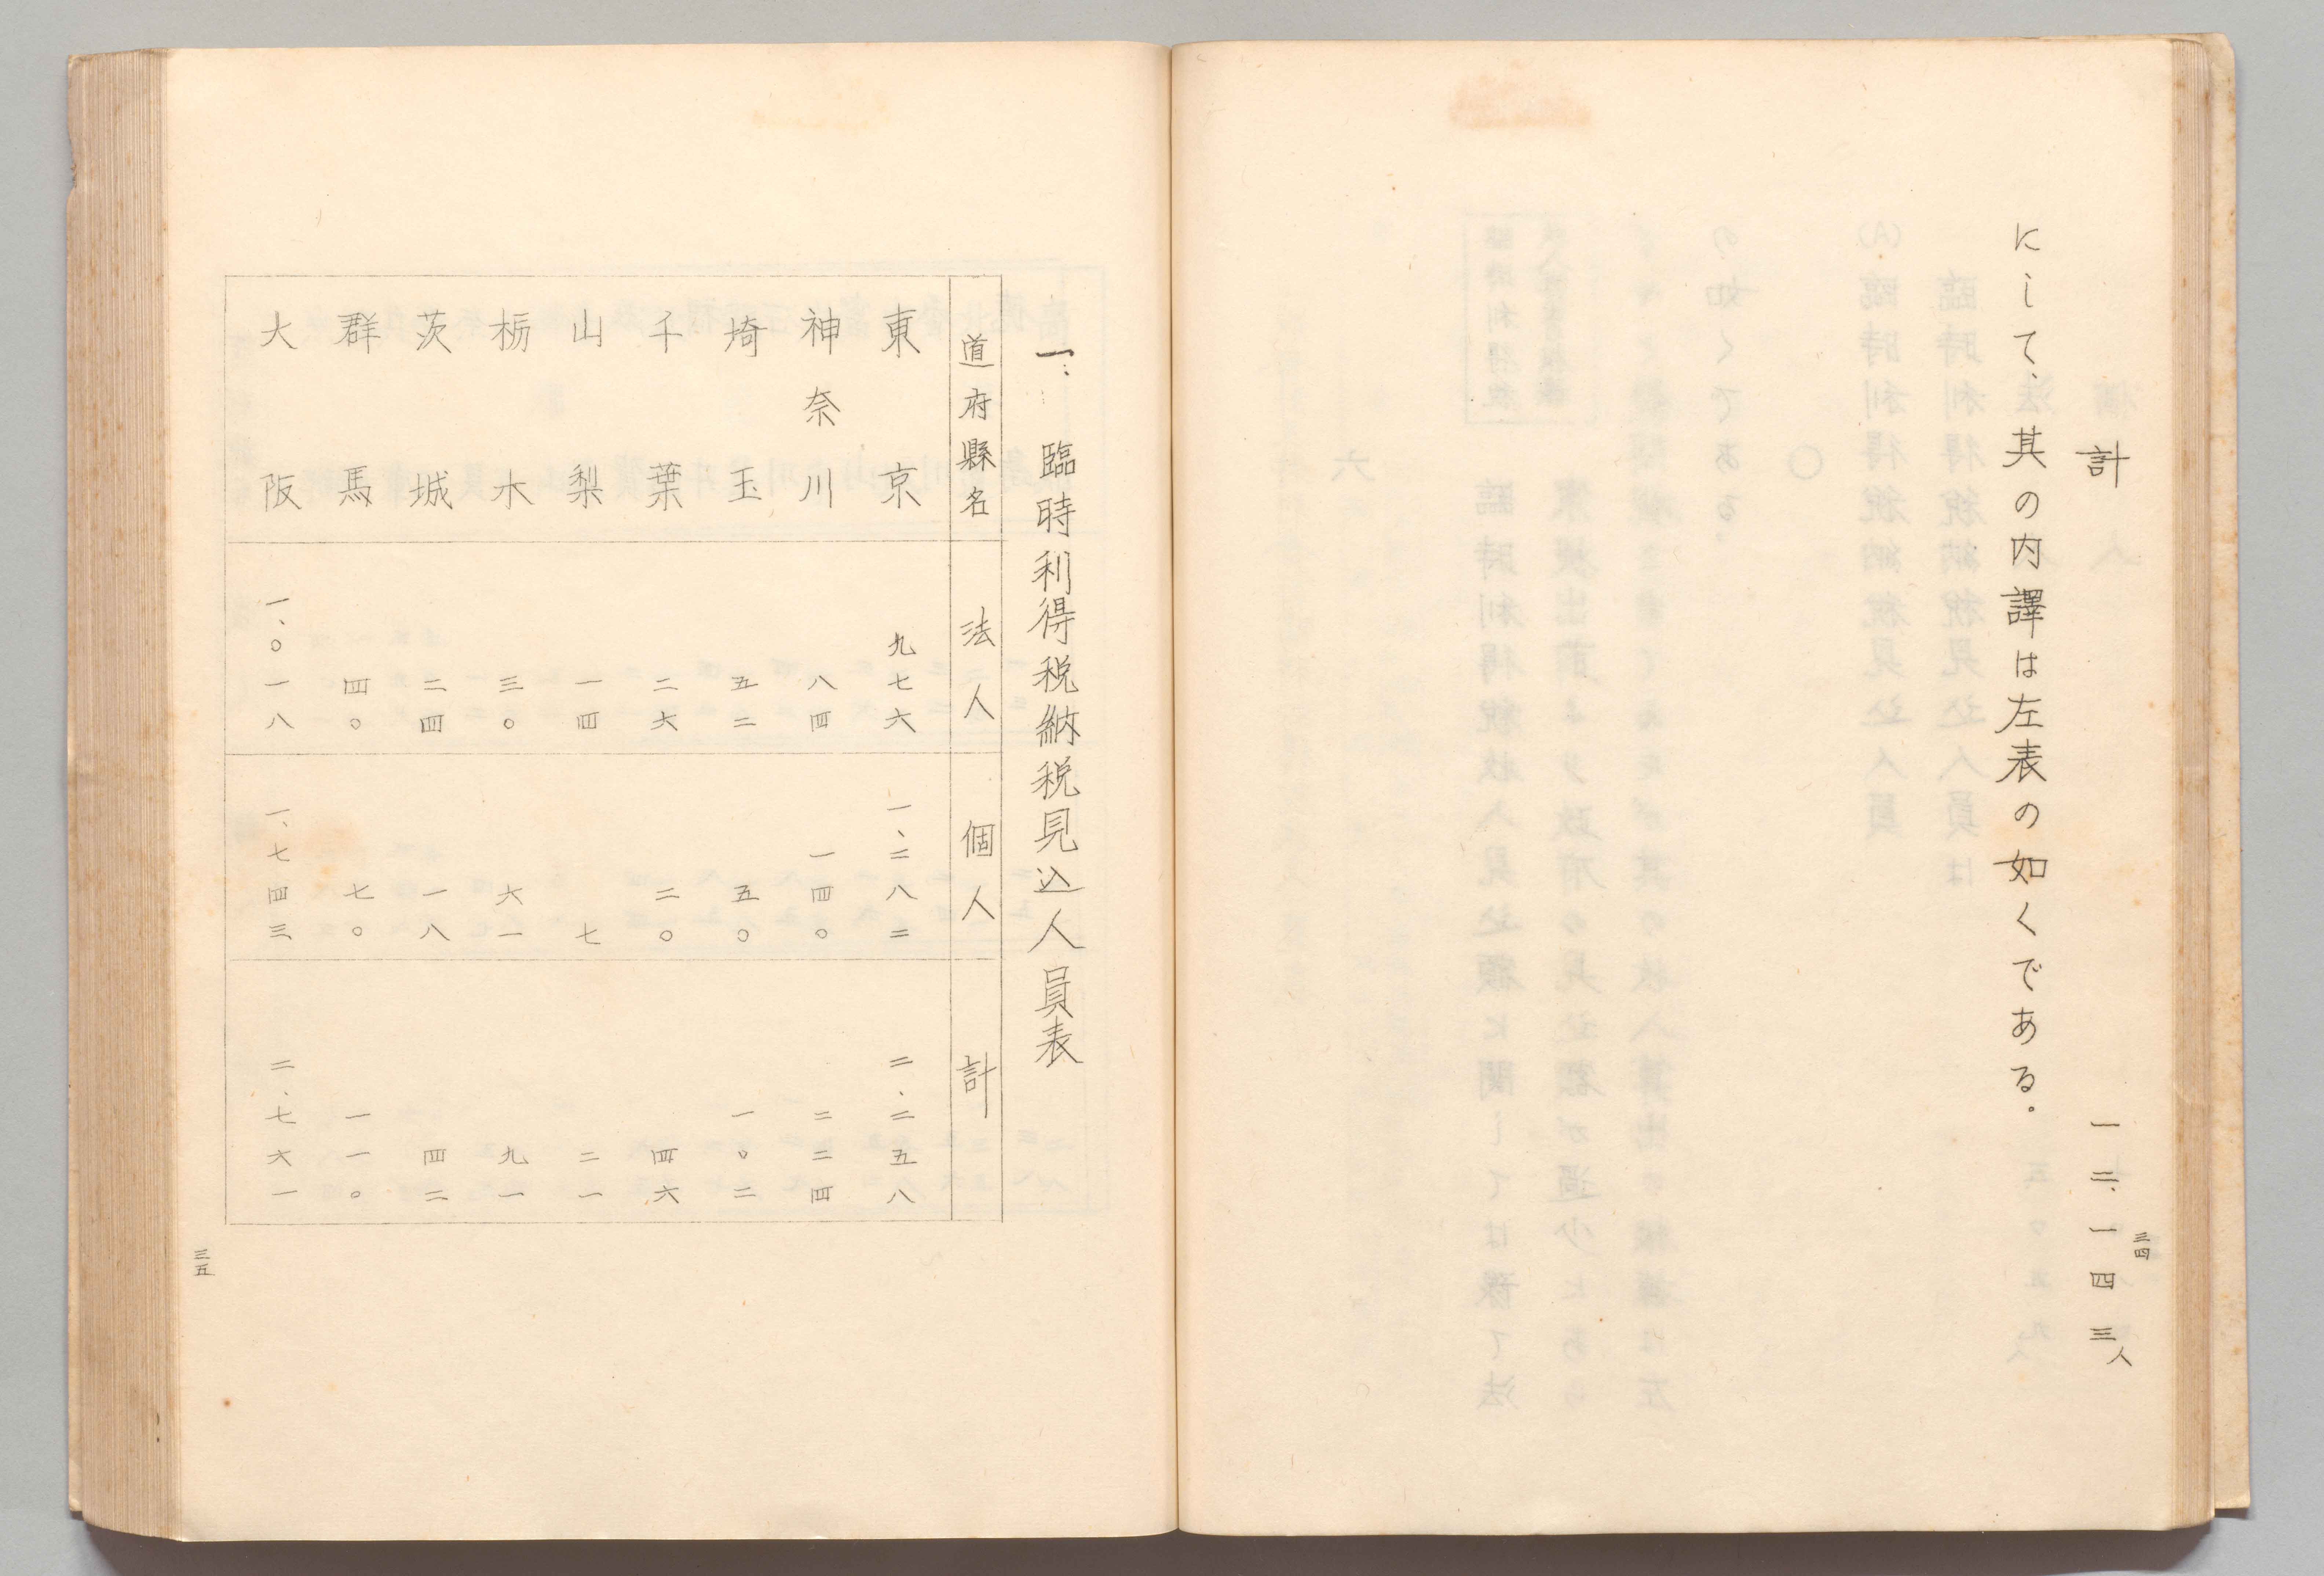 三四
計 一二、一四三人
にして、其の内譯は左表の如くである。
一、臨時利得税納税見込人員表
道府縣名 法人 個人 計
東京 九七六 一、二八二 二、二五八
神奈川 八四 一四〇 二二四
埼玉 五二 五〇 一〇二
千葉 二六 二〇 四六
山梨 一四 七 二一
栃木 三〇 六一 九一
茨城 二四 一八 四二
群馬 四〇 七〇 一一〇
大阪 一、〇一八 一、七四三 二、七六一
三五